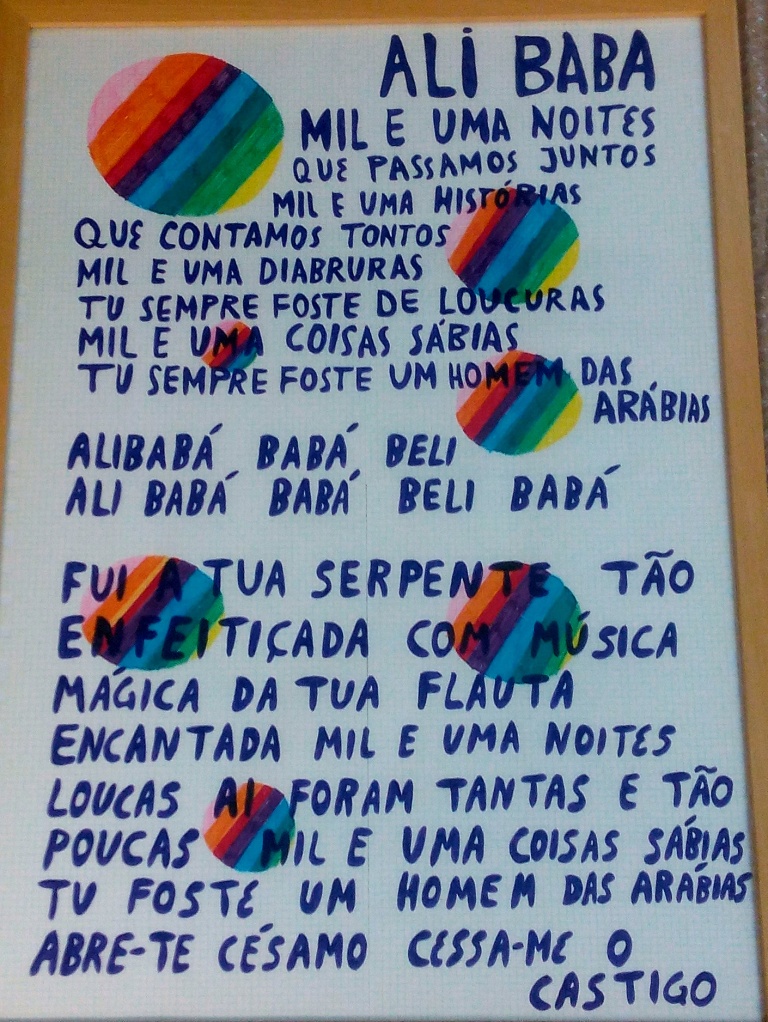 ALI BABA
MIL E UMA NOITES
QUE PASSAMOS JUNTOS
MIL E UMA HISTÓRIAS
QUE CONTAMOS TONTOS
MIL E UMA DIABRURAS
TU SEMPRE FOSTE DE LOUCURAS
MIL E UMA COISAS SÁBIAS
TU SEMPRE FOSTE UM HOMEM DAS
ARÁBIAS
ALIBABÁ BABÁ BELI
ALI BABÁ BABÁ BELI BABÁ
FUI A TUA SERPENTE TÃO
ENFEITIÇADA COM MÚSICA
MÁGICA DA TUA FLAUTA
ENCANTADA MIL E UMA NOITES
LOUCAS AI FORAM TANTAS E TÃO
POUCAS MIL E UMA COISAS SÁBIAS
TU FOSTE UM HOMEM DAS ARÁBIAS
ABRE-TE CÉSAMO CESSA-ME O
CASTIGO